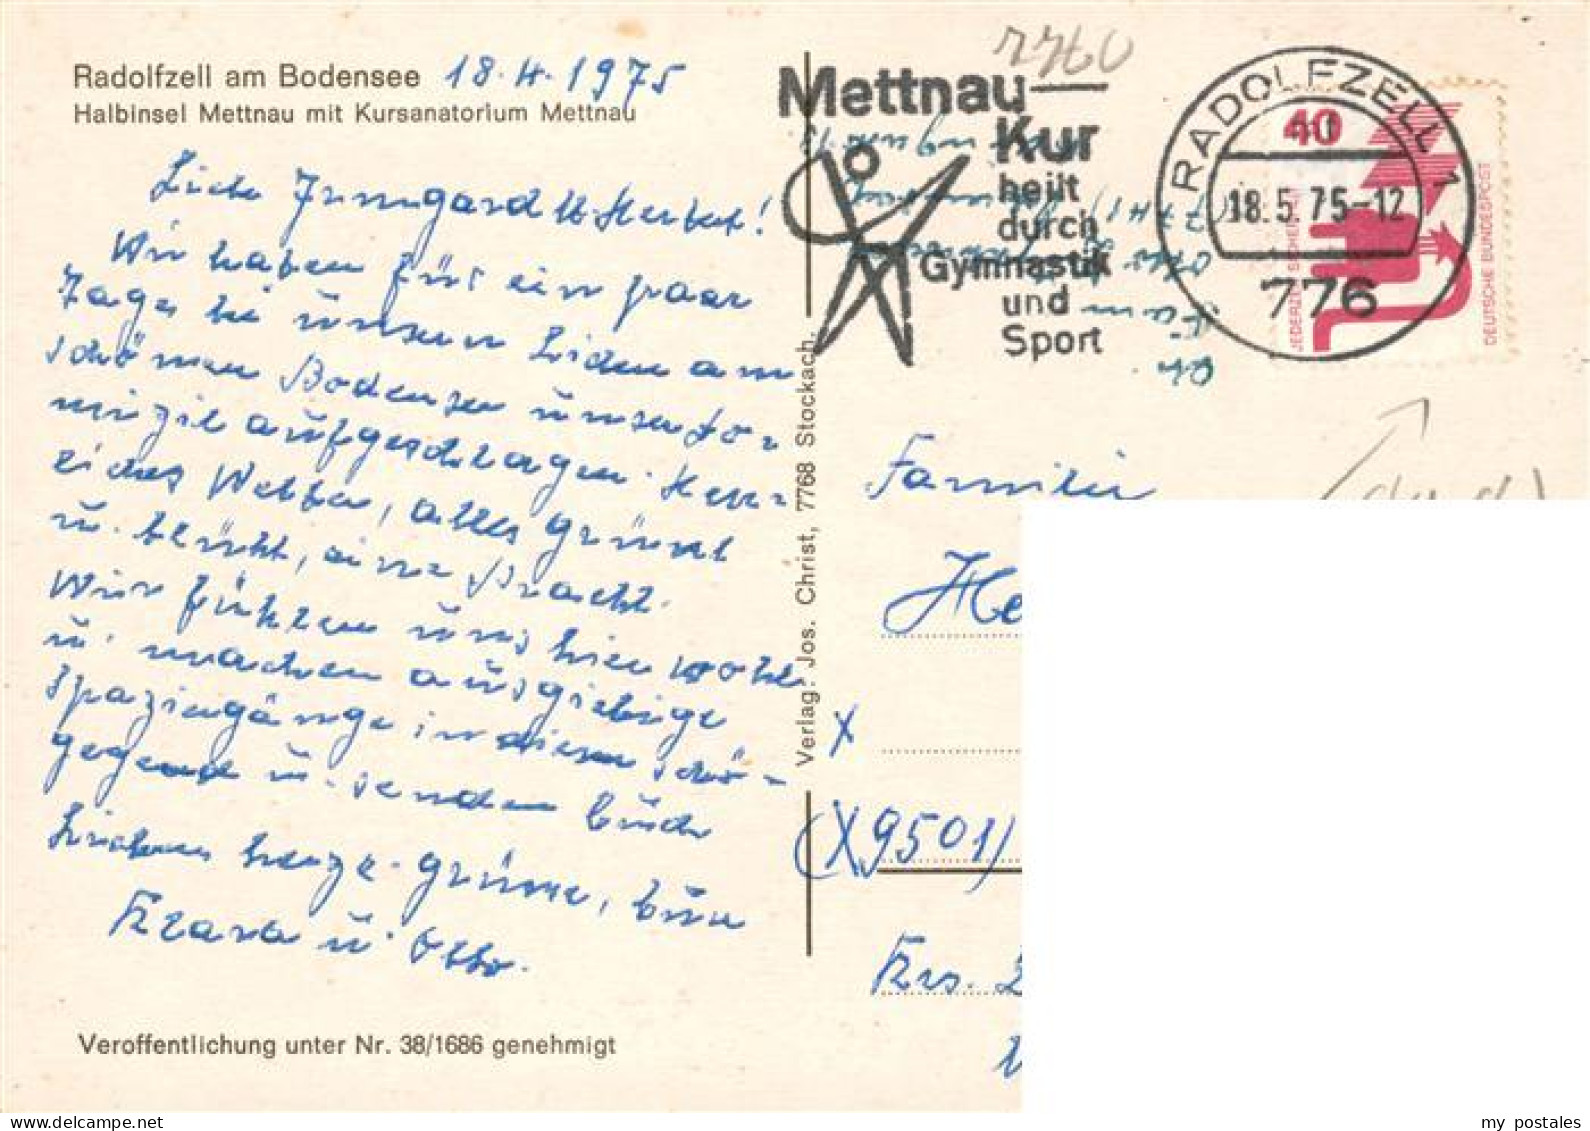 Radolfzell am Bodensee 18.4.1975
Halbinsel Mettnau mit Kursanatorium Mettnau
Liebe Irmgard u. Herbert!
Wir haben für ein paar
Tage bei unsern Lieben am
schönen Bodensee unser Do-
mizil aufgeschlagen. Herr-
liches Wetter, alles grünt
u. blüht, eine Pracht.
Wir fühlen uns hier wohl
u. machen ausgiebige
Spaziergänge in diesem schö-
gegend u. senden Euch
Lieben herzl. Grüsse, Eure
Klara u. Otto.
Veröffentlichung unter Nr. 38/1686 genehmigt
Verlag: Jos. Christ, 7768 Stockach.
7760
Mettnau
Kur
heilt
durch
Gymnastik
und
Sport
RADOLFZELL 1
18.5.75-12
776
40
JEDERZEIT SICHERHEIT
DEUTSCHE BUNDESPOST
Familie
He
X
(X9501)
Krs. Z
my postales